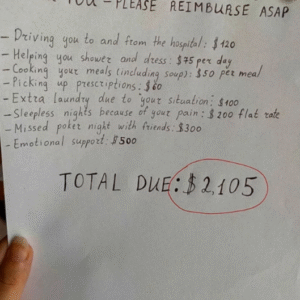 YOU – PLEASE REIMBURSE ASAP
– Driving you to and from the hospital: $120
– Helping you shower and dress: $75 per day
– Cooking your meals (including soup): $50 per meal
– Picking up prescriptions: $60
– Extra laundry due to your situation: $100
– Sleepless nights because of your pain: $200 flat rate
– Missed poker night with friends: $300
– Emotional support: $500
TOTAL DUE: $2,105